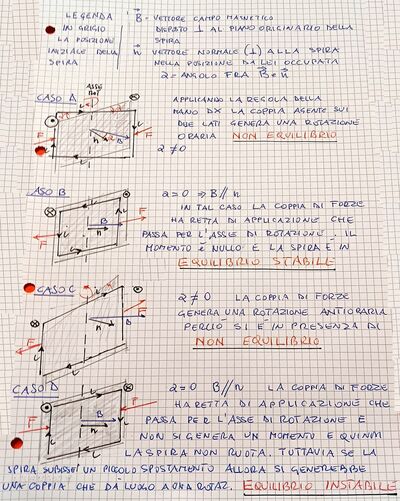 LEGENDA
IN GRIGIO
LA POSIZIONE
INIZIALE DELLA
SPIRA
B = VETTORE CAMPO MAGNETICO
DISPOSTO ⊥ AL PIANO ORIGINARIO DELLA
SPIRA
n VETTORE NORMALE (⊥) ALLA SPIRA
NELLA POSIZIONE DA LEI OCCUPATA
α = ANGOLO FRA B e n
CASO A
ASSE
ROT
F
F
B
n
i
APPLICANDO LA REGOLA DELLA
MANO DX LA COPPIA AGENTE SUI
DUE LATI GENERA UNA ROTAZIONE
ORARIA NON EQUILIBRIO
α ≠ 0
ASO B
F
F
B
n
i
α = 0 ⇒ B // n
IN TAL CASO LA COPPIA DI FORZE
HA RETTA DI APPLICAZIONE CHE
PASSA PER L'ASSE DI ROTAZIONE. IL
MOMENTO È NULLO E LA SPIRA È IN
EQUILIBRIO STABILE
CASO C
F
F
B
n
i
α ≠ 0 LA COPPIA DI FORZE
GENERA UNA ROTAZIONE ANTIORARIA
PERCIÒ SI È IN PRESENZA DI
NON EQUILIBRIO
CASO D
F
F
B
n
i
α = 0 B // n LA COPPIA DI FORZE
HA RETTA DI APPLICAZIONE CHE
PASSA PER L'ASSE DI ROTAZIONE E
NON SI GENERA UN MOMENTO E QUINDI
LA SPIRA NON RUOTA. TUTTAVIA SE LA
SPIRA SUBISSE UN PICCOLO SPOSTAMENTO ALLORA SI GENEREREBBE
UNA COPPIA CHE DÀ LUOGO A UNA ROTAZ. EQUILIBRIO INSTABILE